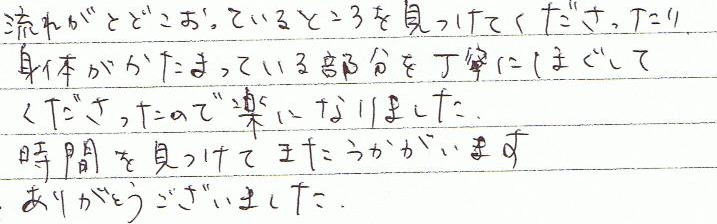 流れがとどこおっているところを見つけてくださったり
身体がかたまっている部分を丁寧にほぐして
くださったので楽になりました.
時間を見つけてまたうかがいます
ありがとうございました.